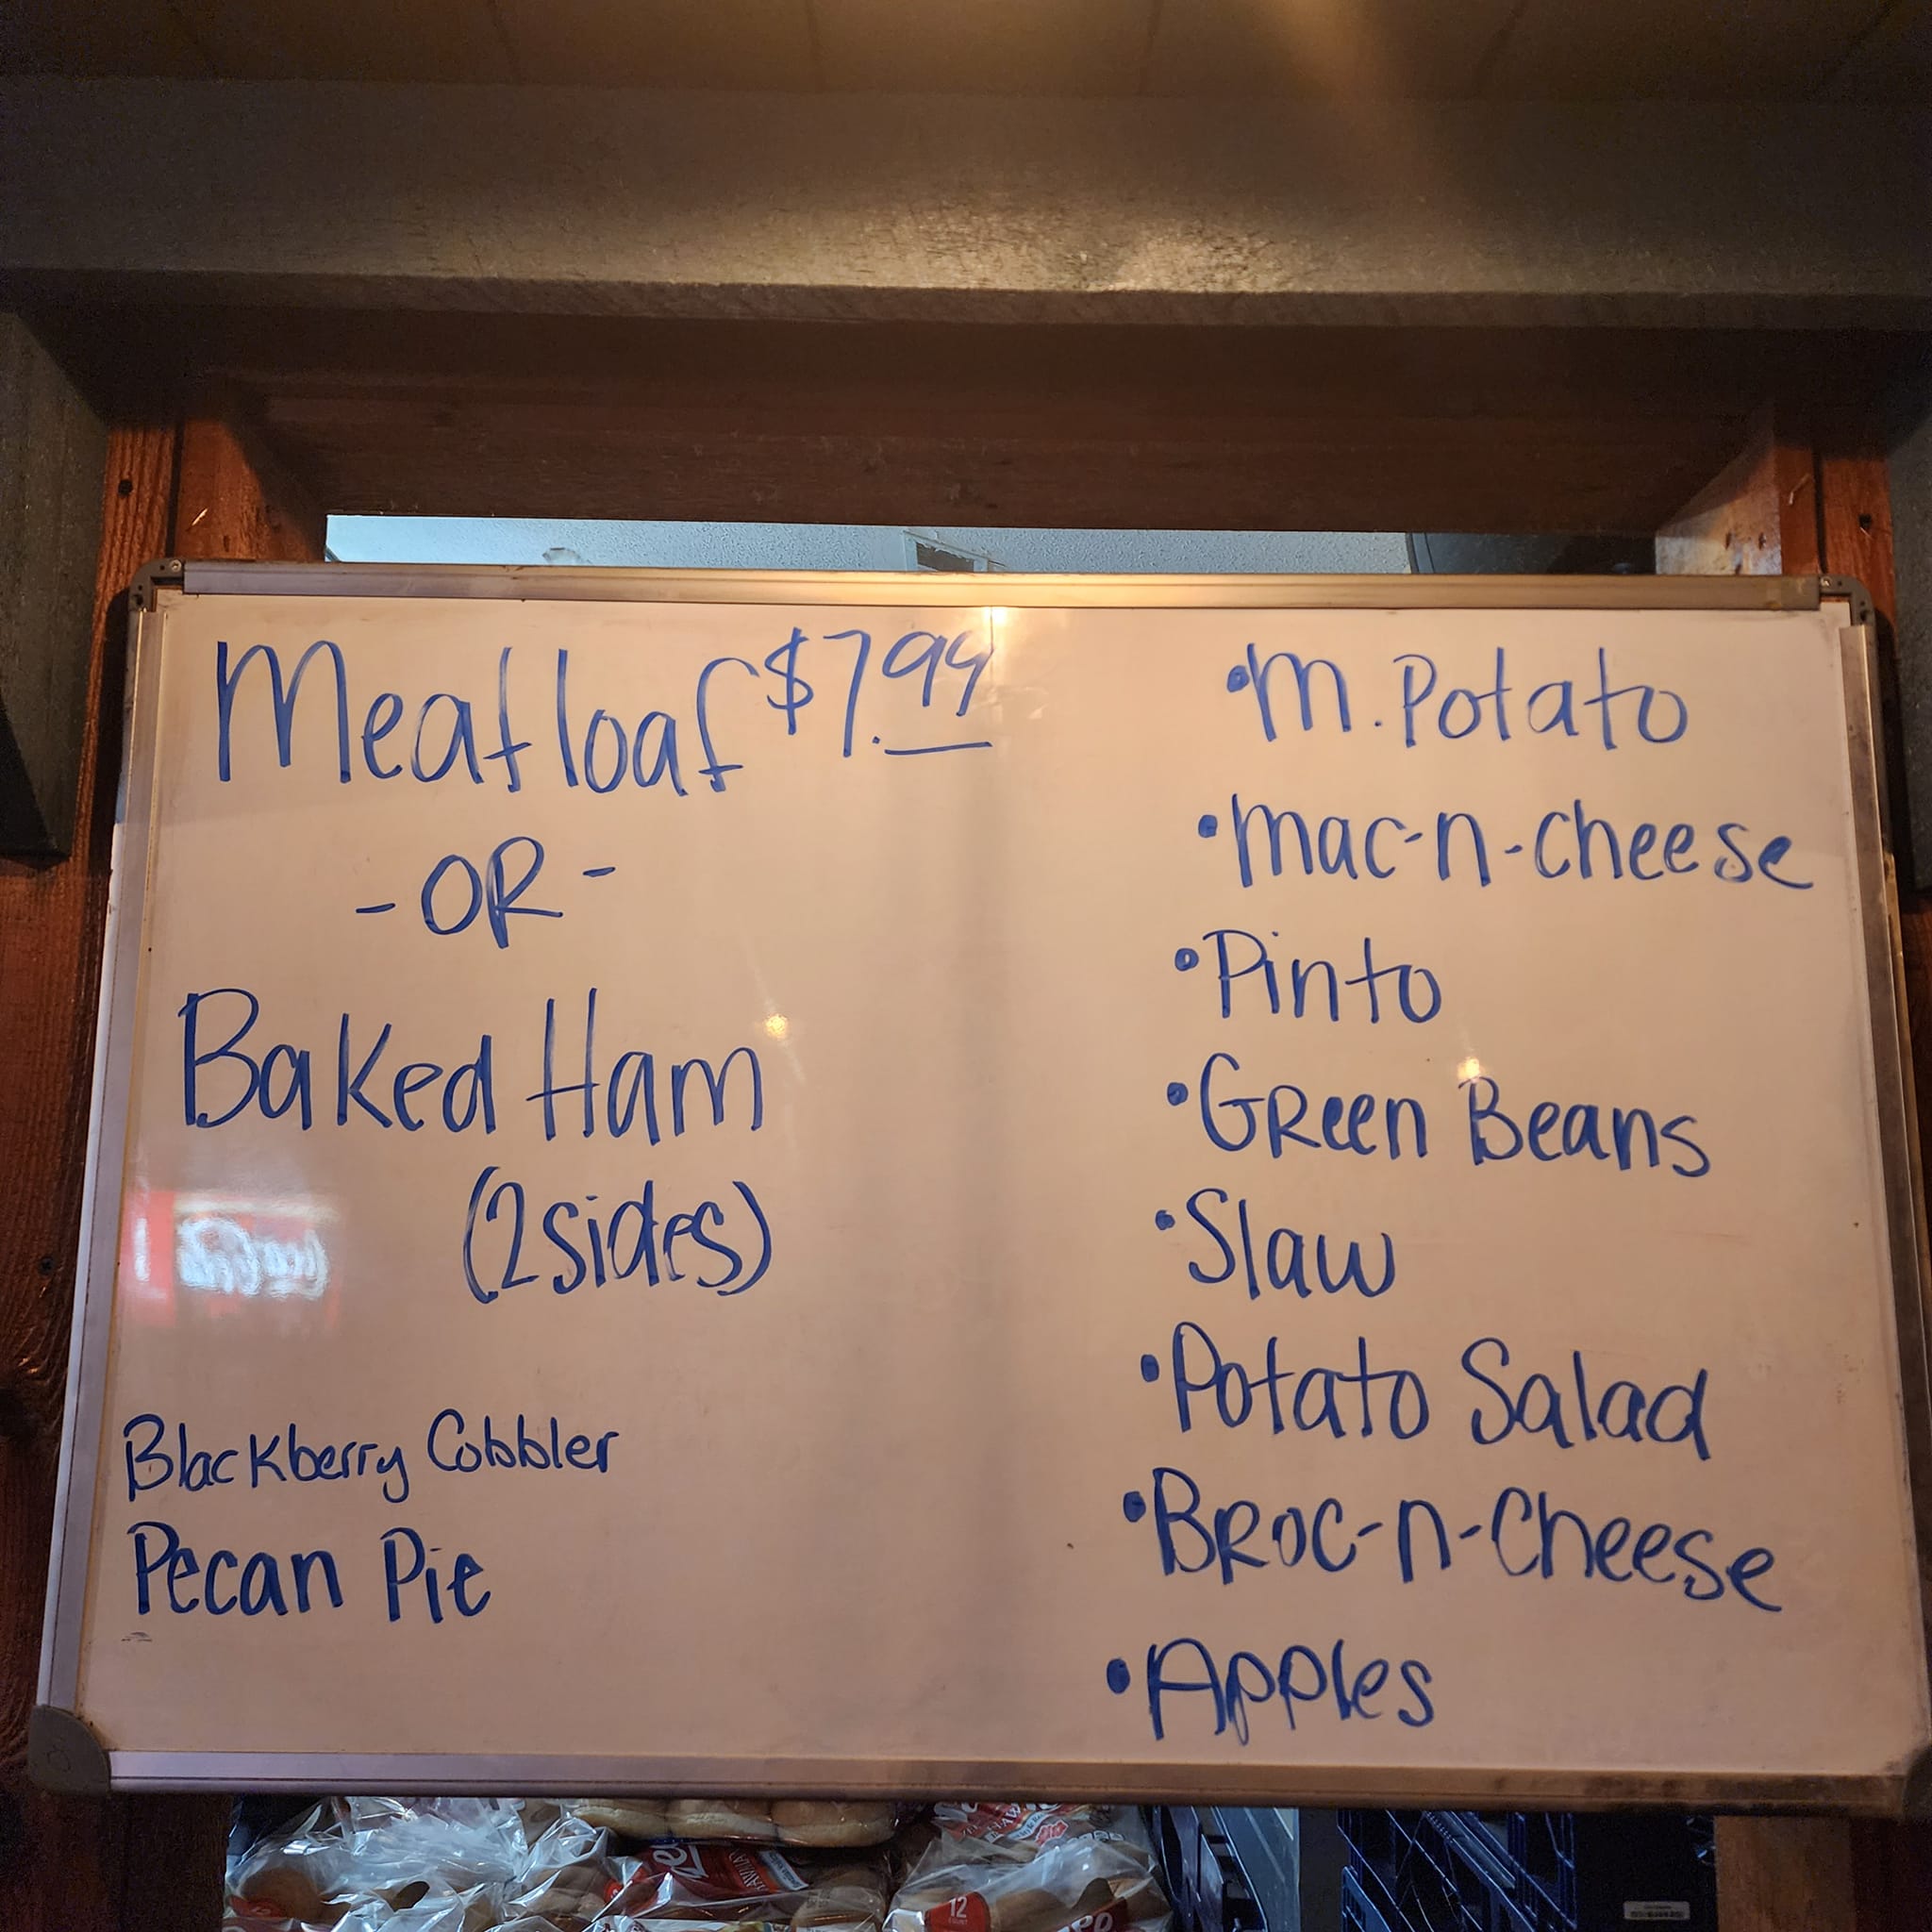 Meatloaf $7.99
- OR -
Baked Ham
(2 sides)
Blackberry Cobbler
Pecan Pie
• M. Potato
• Mac-n-cheese
• Pinto
• GReen Beans
• Slaw
• Potato Salad
• BRoc-n-Cheese
• Apples
12